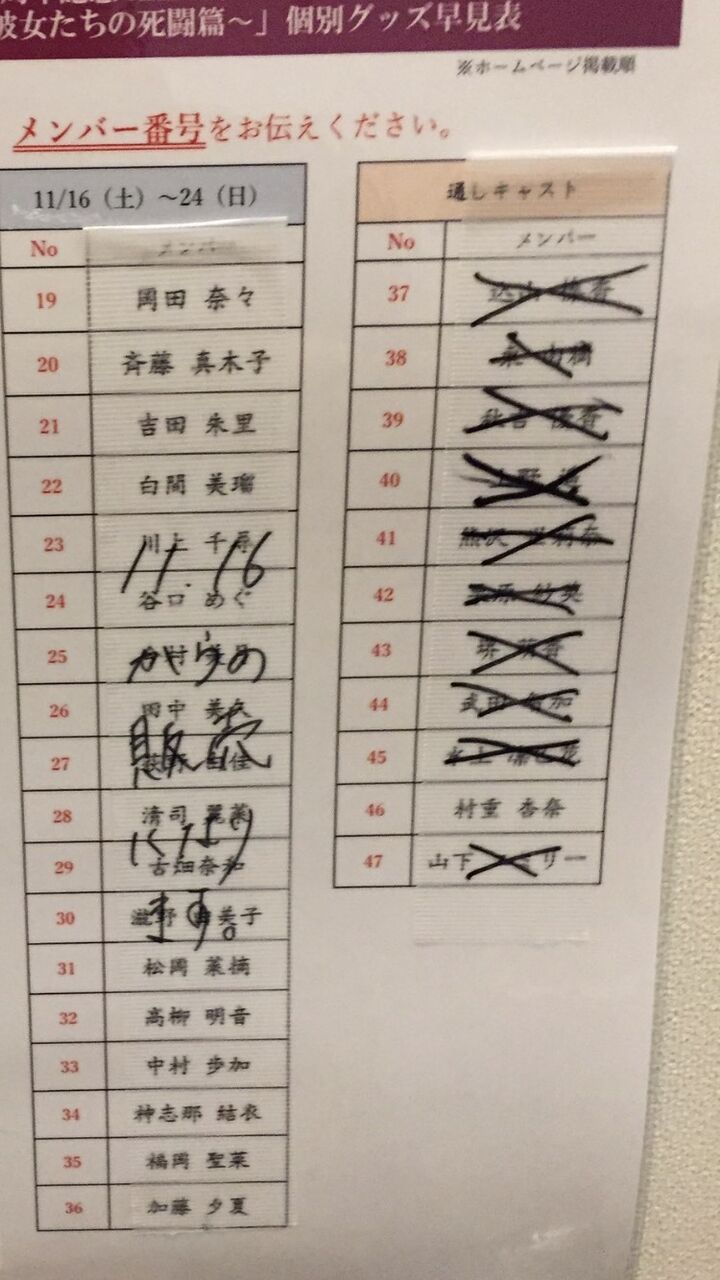 彼女たちの死闘篇～」個別グッズ早見表
※ホームページ掲載順
メンバー番号をお伝えください。
11/16（土）～24（日）
No メンバー
19 岡田 奈々
20 斉藤 真木子
21 吉田 朱里
22 白間 美瑠
23 川上 千尋
24 谷口 めぐ
25 村
26 田中 美久
27 佳
28 清司 麗菜
29 古畑奈和
30 滋野 由美子
31 松岡 菜摘
32 高柳 明音
33 中村 歩加
34 神志那 結衣
35 福岡 聖菜
36 加藤 夕夏
11.16
からの
販売
になり
ます。
通しキャスト
No メンバー
37
38
39 秋吉 優香
40
41 熊沢
42
43 堺 萌香
44 武田
45 水上
46 村重 杏奈
47 山下 リー